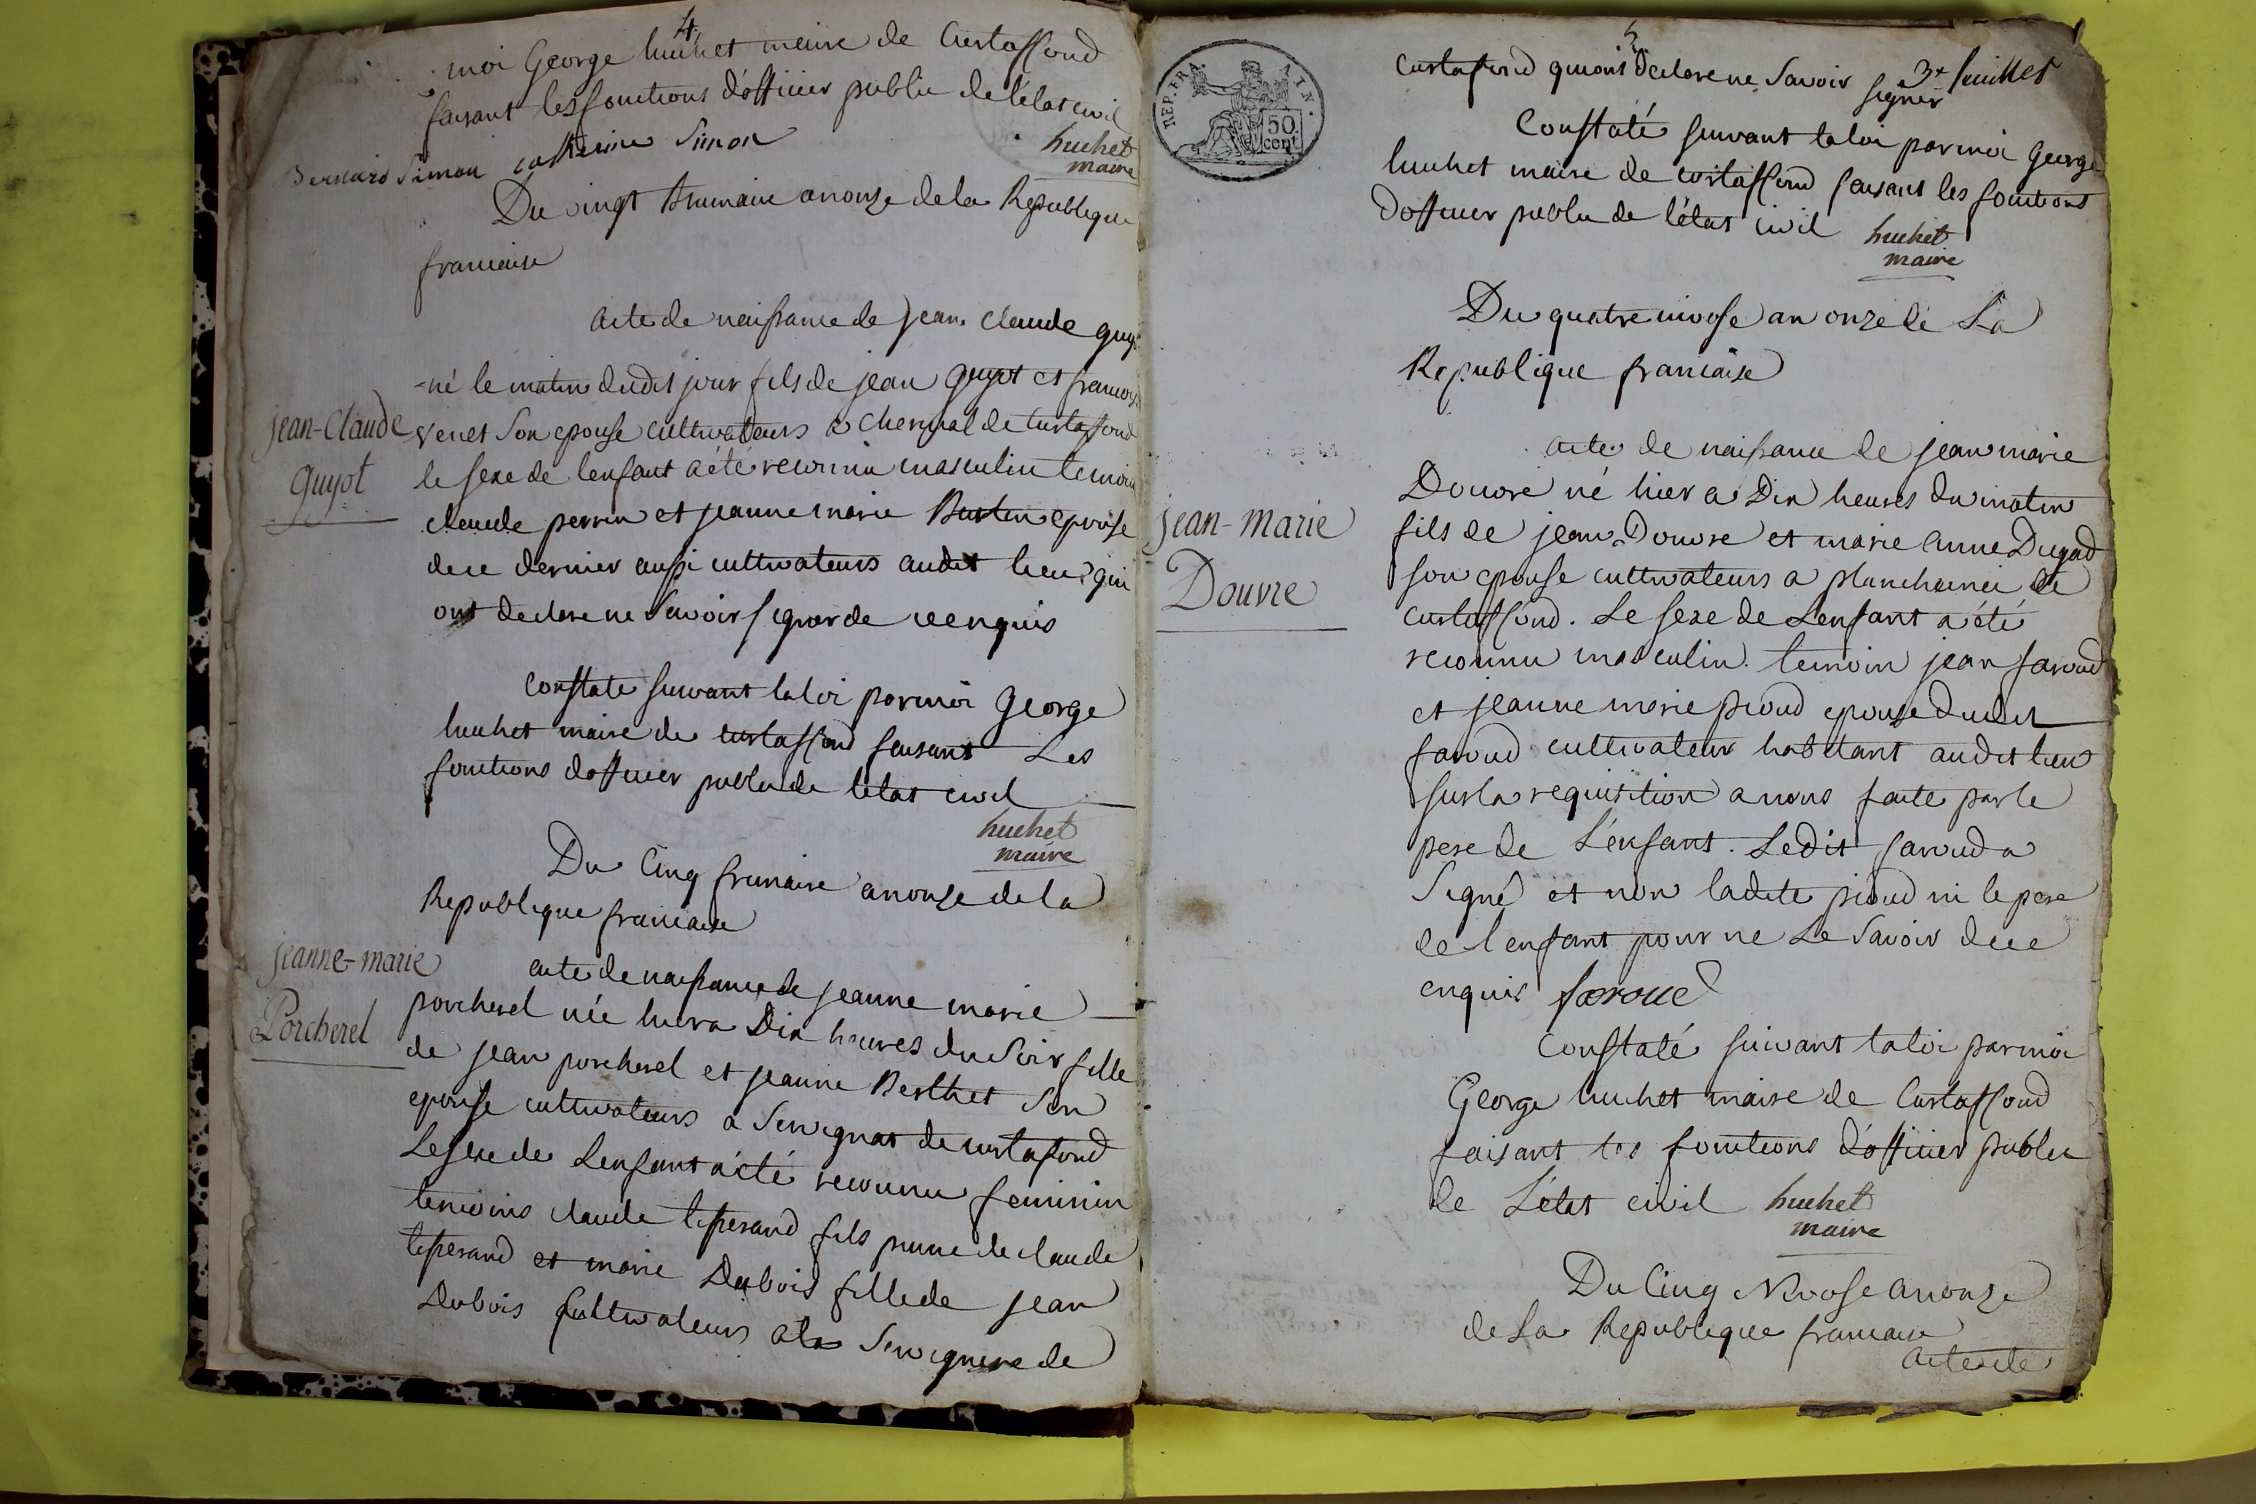 4
moi George huchet maire de Curtaffond
faisant les fonctions d'officier public de l'état civil
Bernard Simon catherine Simon
huchet
maire
Du vingt brumaire an onze de la Republique
francaise
acte de naissance de jean claude guyot
jean-Claude
guyot
né le matin dudit jour fils de jean guyot et francoise
venet son epouse cultivateurs a de Curtaffond
le sexe de lenfant a été reconnu masculin temoins
claude perrin et jeanne marie epouse
de ce dernier aussi cultivateurs audit lieu qui
ont declare ne savoir signer de ce enquis
Constaté suivant la loi par moi George
huchet maire de Curtaffond faisant Les
fonctions dofficier public de letat civil
huchet
maire
Du Cinq frimaire an onze de la
Republique francaise
jeanne-marie
Porcherel
acte de naissance de jeanne marie
porcherel née hier a Dix heures du Soir fille
de jean porcherel et jeanne Berthet Son
epouse cultivateurs a de curtafond
Le sexe de Lenfant a été reconnu feminin
temoins claude tisserand fils de claude
tisserand et marie Dubois fille de jean
Dubois Cultivateurs de
5
3e feuillet
REP. FRA.
AIN.
50
cent
curtafond qui ont declare ne Savoir signer
Constaté suivant la loi par moi George
huchet maire de curtaffond faisant les fonctions
Dofficier public de l'état civil
huchet
maire
Du quatre nivose an onze de La
Republique francaise
acte de naissance de jean marie
jean-marie
Douvre
Douvre né hier a Dix heures du matin
fils de jean Douvre et marie anne Dugad
son epouse cultivateurs a de
curtaffond. Le sexe de Lenfant a été
reconnu masculin. temoin jean faroud
et jeanne marie pioud epouse dudit
faroud cultivateur habitant audit lieu
sur la requisition a nous faite par le
pere de L'enfant. Ledit faroud a
Signé et non ladite pioud ni le pere
de l'enfant pour ne Le Savoir de ce
enquis faroud
Constaté suivant la loi par moi
George huchet maire de Curtaffond
faisant les fonctions d'officier public
de L'état civil
huchet
maire
Du Cinq Nivose an onze
de La Republique francaise
acte de